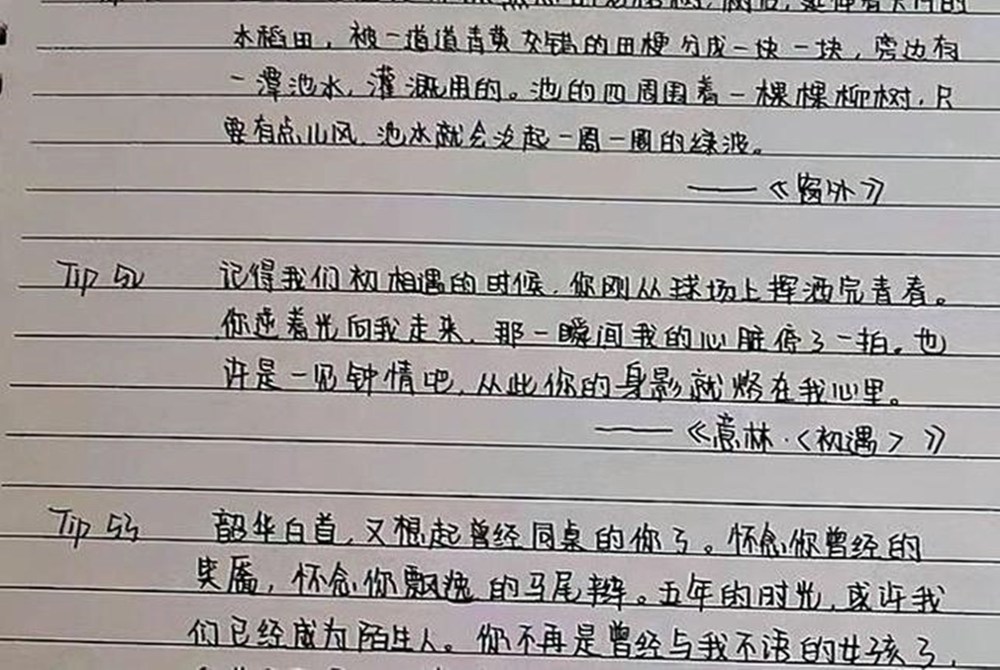 水稻田，被一道道青黄交错的田埂分成一块一块，旁边有
一潭池水，灌溉用的。池的四周围着一棵棵柳树，只
要有点儿风，池水就会泛起一圈一圈的绿波。
——《窗外》
Tip 52 记得我们初相遇的时候，你刚从球场上挥洒完青春。
你逆着光向我走来，那一瞬间我的心脏停了一拍。也
许是一见钟情吧，从此你的身影就烙在我心里。
——《意林·〈初遇〉》
Tip 53 韶华白首，又想起曾经同桌的你了。怀念你曾经的
笑靥，怀念你飘逸的马尾辫。五年的时光，或许我
们已经成为陌生人。你不再是曾经与我不语的女孩了，